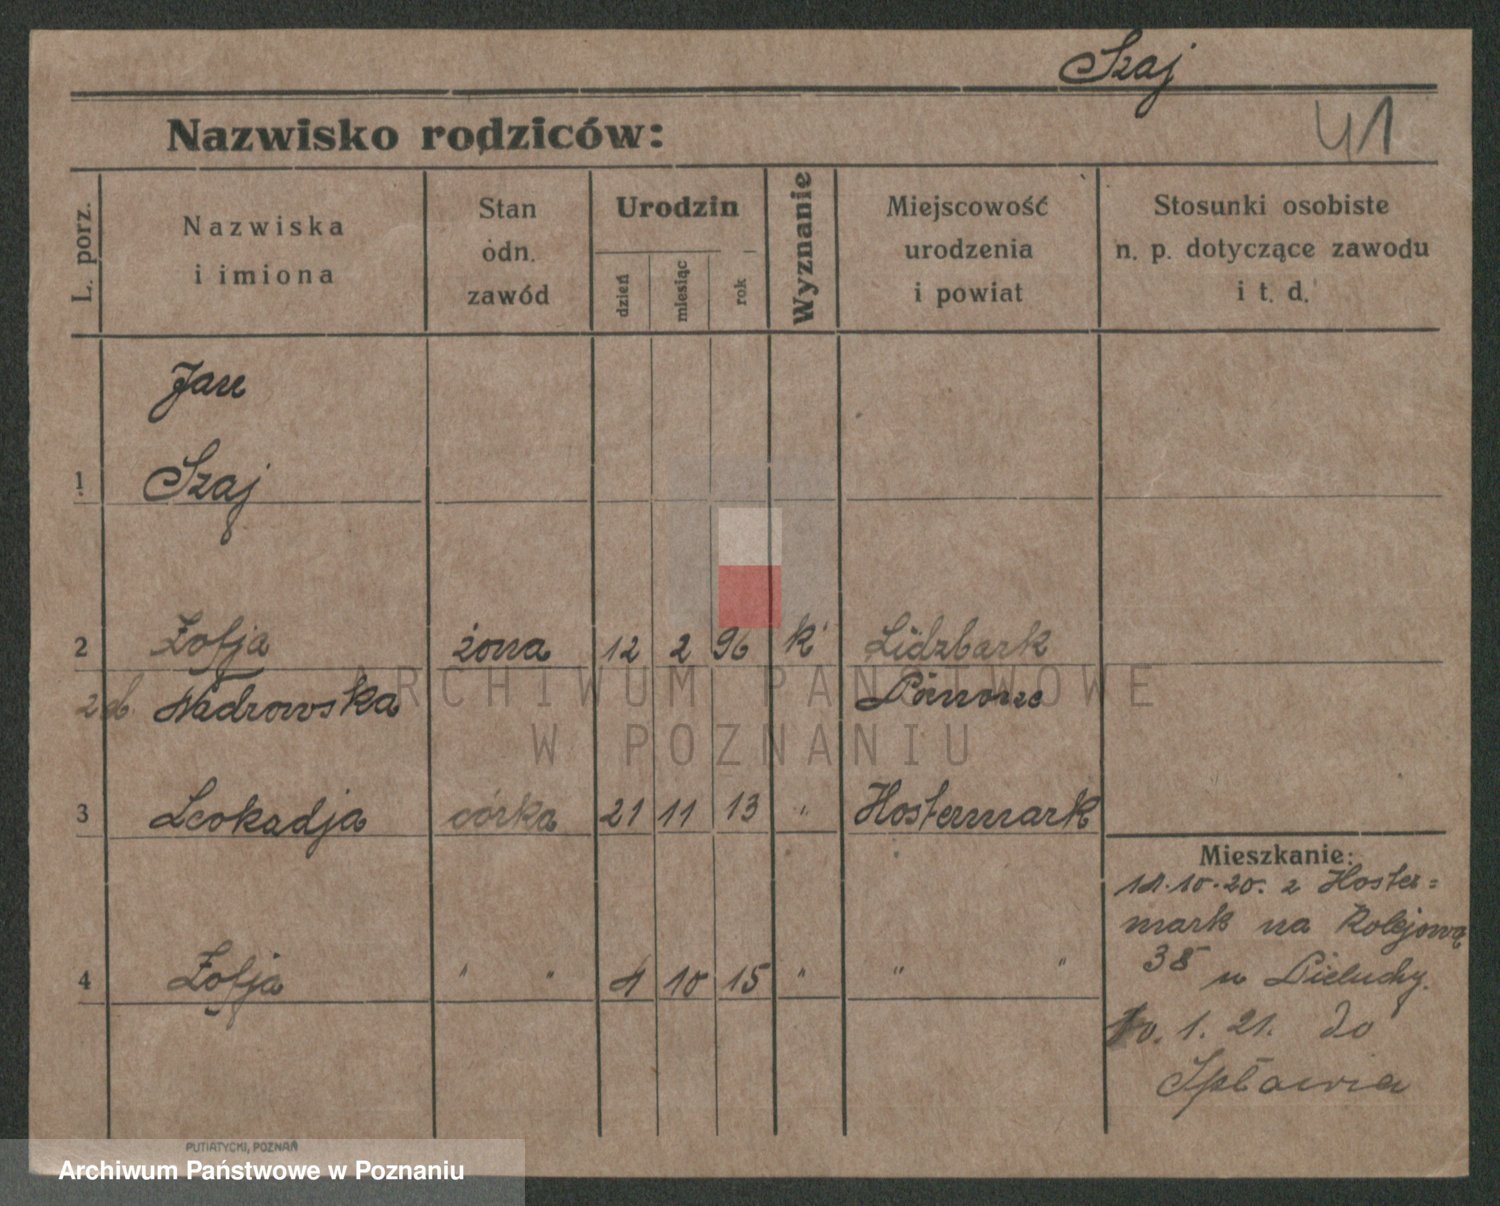 Szaj
41
Nazwisko rodziców:
L. porz.
Nazwiska
i imiona
Stan
odn.
zawód
Urodzin
dzień
miesiąc
rok
Wyznanie
Miejscowość
urodzenia
i powiat
Stosunki osobiste
n. p. dotyczące zawodu
i t. d.
Jan
1 Szaj
2 Zofja żona 12 2 96 k Lidzbark
2 d. Nadrowska
3 Leokadja córka 21 11 13 " Hostermark
Mieszkanie:
10.20. z Hoster=
mark na Kolejową
38 u Pieluchy.
4 Zofja " " 4 10 15 " " "
10. 1. 21. do
Spławia
PUTIATYCKI, POZNAŃ
ARCHIWUM PAŃSTWOWE
W POZNANIU
Archiwum Państwowe w Poznaniu